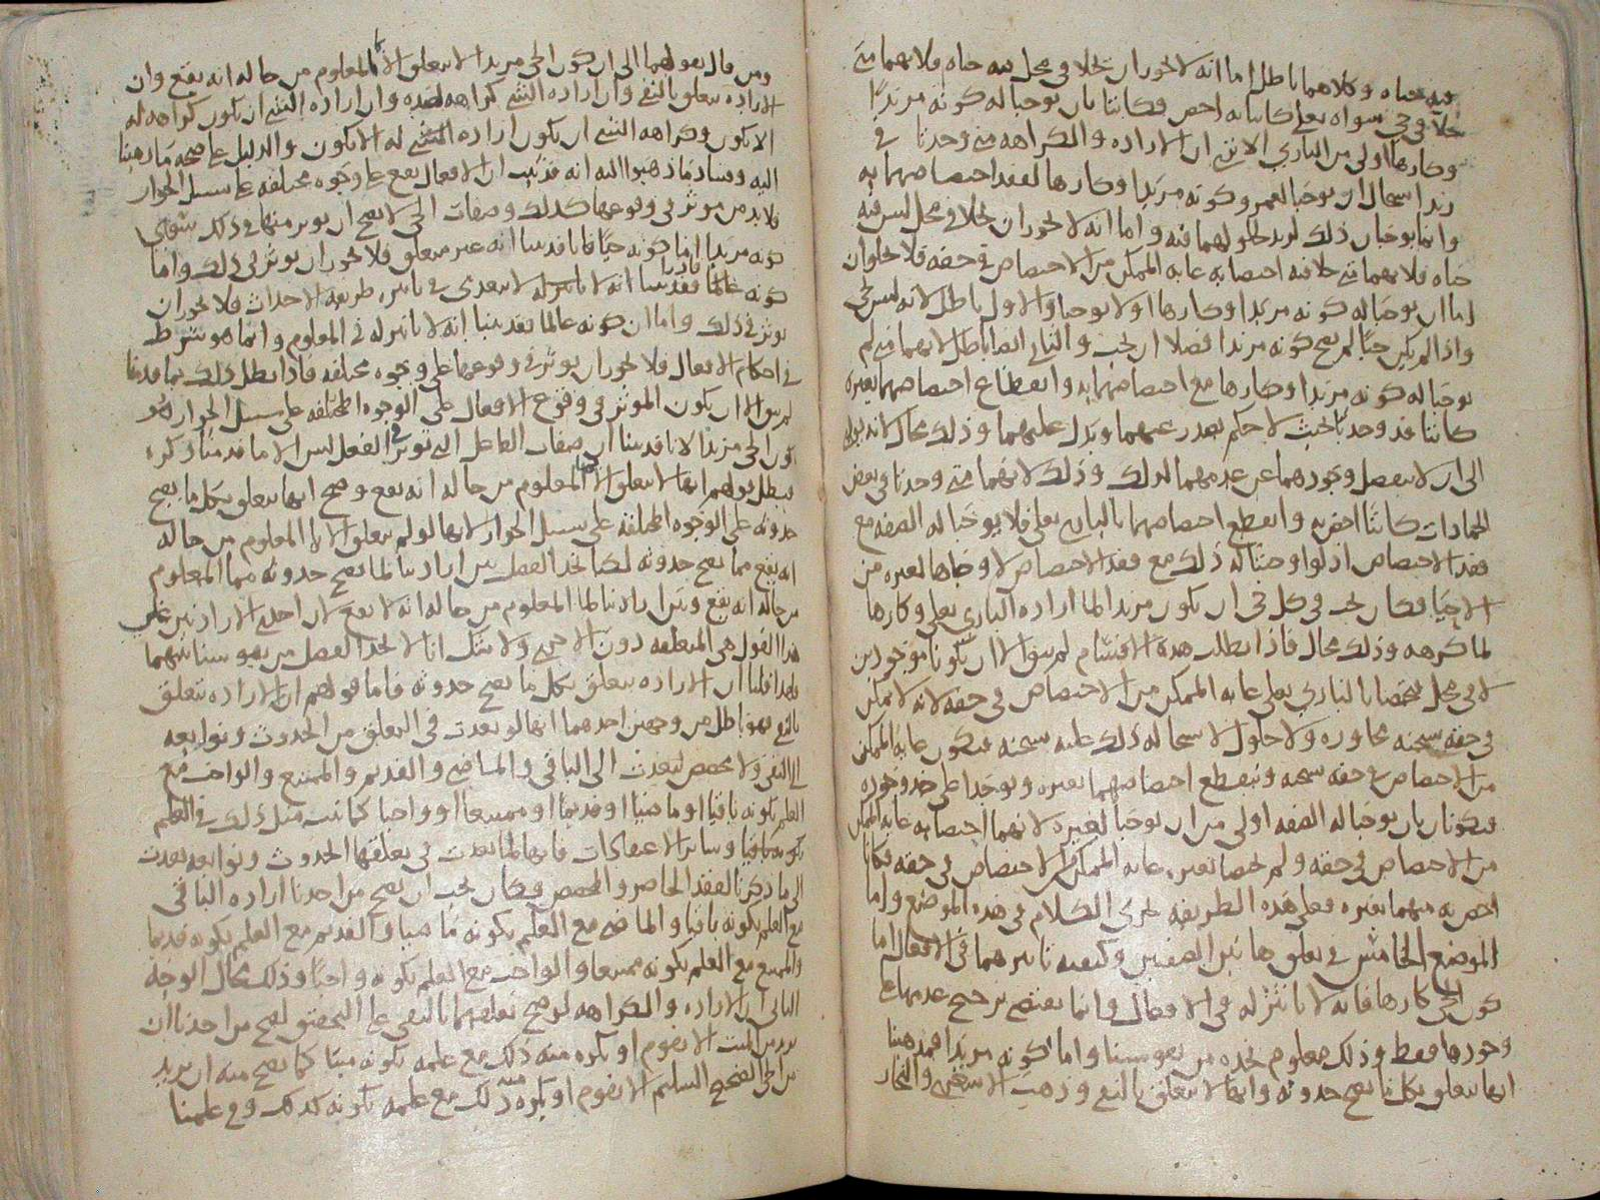 فيه حياه وكلاهما باطل اما انه لا يجوز ان يحلا في محل فيه حياه فلانهما متى
حلا في حي سواه تعلى كانتا به اخص فكانتا بان يوجبا له كونه مريدا
وكارها اولى من الباري الا ترى ان الاراده والكراهه متى وجدتا في
زيد استحال ان يوجبا لعمرو كونه مريدا وكارها لفقد اختصاصهما به
وانما يوجبان ذلك لزيد لحلولهما فيه واما انه لا يجوز ان يحلا في محل ليس فيه
حياه فلانهما متى حلا فيه اختصا به غايه الممكن من الاختصاص في حقه فلا يخلوان
اما ان يوجبا له كونه مريدا وكارها او لا يوجبا والاول باطل لانه ليس بحي
واذا لم يكن حيا لم يصح كونه مريدا فضلا ان يجب والثاني ايضا باطل لانهما متى لم
يوجبا له كونه مريدا وكارها مع اختصاصهما به وانقطاع اختصاصهما بغيره
كانتا قد وجدتا بحيث لا حكم يصدر عنهما ويدل عليهما وذلك محال لانه يودي
الى ان لا ينفصل وجودهما عن عدمهما لذلك وذلك لانهما متى وجدتا في بعض
الجمادات كانتا اخص به وانقطع اختصاصهما بالباري تعلى فلا يوجبا له الصفه مع
فقد الاختصاص اذ لو اوجبتا له ذلك مع فقد الاختصاص لاوجباها لغيره من
الاحيا فكان يجب في كل حي ان يكون مريدا لما اراده الباري تعلى وكارها
لما كرهه وذلك محال فاذا بطلت هذه الاقسام لم يبق الا ان يكونا موجودين
لا في محل فيختصا بالباري تعلى غايه الممكن من الاختصاص في حقه لانه لا يمكن
في حقه سبحنه مجاوره ولا حلول لاستحاله ذلك عليه سبحنه فيكون غايه الممكن
من الاختصاص في حقه سبحنه وينقطع اختصاصهما بغيره ويوجدا على حد وجوده
فيكونان بان يوجبا له الصفه اولى من ان يوجبا لغيره لانهما اختصا به غايه الممكن
من الاختصاص في حقه ولم يختصا بغيره غايه الممكن من الاختصاص في حقه فكانا
اخص به منهما بغيره فعلى هذه الطريقه يجري الكلام في هذه الموضع واما
الموضع الخامس في تعلق هاتين الصفتين وكيفيه تاثيرهما في الافعال اما
كون الحي كارها فانه لا تاثير له في الافعال وانما يقتضي ترجيح عدمها على
وجودها فقط وذلك معلوم يجده من نفوسنا واما كونه مريدا فمذهبنا
انها تتعلق بكل ما يصح حدوثه وانها لا تتعلق بالنفي وذهبت الاشعريه والنجار
ومن قال بقولهما الى ان كون الحي مريدا لا يتعلق الا بالمعلوم من حاله انه يقع وان
الاراده تتعلق بالنفي وان اراده الشي كراهه لضده وان اراده الشي ان يكون كراهه له
الا يكون وكراهه الشي ان يكون اراده للشي له الا يكون والدليل على صحه ما ذهبنا
اليه وفساد ما ذهبوا اليه انه قد ثبت ان الافعال تقع على وجوه مختلفه على سبيل الجواز
فلا بد من موثر في وقوعها كذلك وصفات الحي لا يصح ان يوثر منها في ذلك سوى
كونه مريدا اما كونه حيا فانا قد بينا انه غير متعلق فلا يجوز ان يوثر في ذلك واما
كونه قادرا فقد بينا انه لا تاثير له لا يتعدى في تاثيره طريقه الاحداث فلا يجوز ان
يوثر في ذلك واما ان كونه عالما فقد بينا انه لا تاثير له في المعلوم وانما هو شرط
في احكام الافعال فلا يجوز ان يوثر في وقوعها على وجوه مختلفه فاذا بطل ذلك بما قدمنا
لم يبق الا ان يكون الموثر في وقوع الافعال على الوجوه المختلفه على سبيل الجواز هو
كون الحي مريدا لانا قد بينا ان صفات الفاعل التي توثر في الفعل ليس الا ما قد منا ذكره
فبطل قولهم انها لا تتعلق الا بالمعلوم من حاله انه يقع وصح انها تتعلق بكل ما يصح
حدوثه على الوجوه المختلفه على سبيل الجواز لانها لو لم تتعلق الا بالمعلوم من حاله
انه يقع مما يصح حدوثه لكنا نجد الفصل بين ارادتنا لما يصح حدوثه مما المعلوم
من حاله انه يقع وبين ارادتنا لما المعلوم من حاله انه لا يقع لان احدى الارادتين على
هذا القول هي المتعلقه دون الاخرى ولا شك انا لا نجد الفصل من نفوسنا بينهما
فلهذا قلنا ان الاراده تتعلق بكل ما يصح حدوثه فاما قولهم ان الاراده تتعلق
بالنفي فهو باطل من وجهين احدهما انها لو تعدت في التعلق من الحدوث وتوابعه
الى النفي ولا مخصص لتعدت الى الباقي والماضي والقديم والممتنع والواجب مع
العلم بكونه باقيا او ماضيا او قديما او ممتنعا او واجبا كما ثبت مثل ذلك في العلم
بكونه باقيا وسائر الاعتقادات فانها لما تعدت في تعلقها الحدوث وتوابعه تعدت
الى ما ذكرنا لفقد الحاصر والمخصص فكان يجب ان يصح من احدنا اراده الباقي
مع العلم بكونه باقيا والماضي مع العلم بكونه ماضيا والقديم مع العلم بكونه قديما
والممتنع مع العلم بكونه ممتنعا والواجب مع العلم بكونه واجبا وذلك محال الوجه
الثاني ان الاراده والكراهه لو صح تعلقهما بالنفي على التحقيق لصح من احدنا ان
يريد من الميت الا يقوم او يكره منه ذلك مع علمه بكونه ميتا كما يصح منه ان يريد
من الحي الصحيح السليم الا يقوم او يكره منه ذلك مع علمه بكونه كذلك وفي علمنا